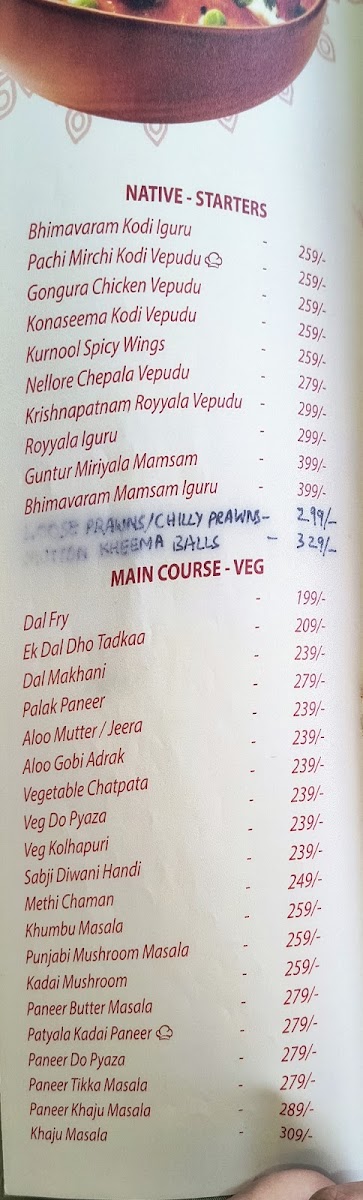 NATIVE - STARTERS
Bhimavaram Kodi Iguru - 259/-
Pachi Mirchi Kodi Vepudu - 259/-
Gongura Chicken Vepudu - 259/-
Konaseema Kodi Vepudu - 259/-
Kurnool Spicy Wings - 259/-
Nellore Chepala Vepudu - 279/-
Krishnapatnam Royyala Vepudu - 299/-
Royyala Iguru - 299/-
Guntur Miriyala Mamsam - 399/-
Bhimavaram Mamsam Iguru - 399/-
LOOSE PRAWNS/CHILLY PRAWNS- 299/-
MUTTON KHEEMA BALLS - 329/-
MAIN COURSE - VEG
Dal Fry - 199/-
Ek Dal Dho Tadkaa - 209/-
Dal Makhani - 239/-
Palak Paneer - 279/-
Aloo Mutter / Jeera - 239/-
Aloo Gobi Adrak - 239/-
Vegetable Chatpata - 239/-
Veg Do Pyaza - 239/-
Veg Kolhapuri - 239/-
Sabji Diwani Handi - 239/-
Methi Chaman - 249/-
Khumbu Masala - 259/-
Punjabi Mushroom Masala - 259/-
Kadai Mushroom - 259/-
Paneer Butter Masala - 279/-
Patyala Kadai Paneer - 279/-
Paneer Do Pyaza - 279/-
Paneer Tikka Masala - 279/-
Paneer Khaju Masala - 289/-
Khaju Masala - 309/-